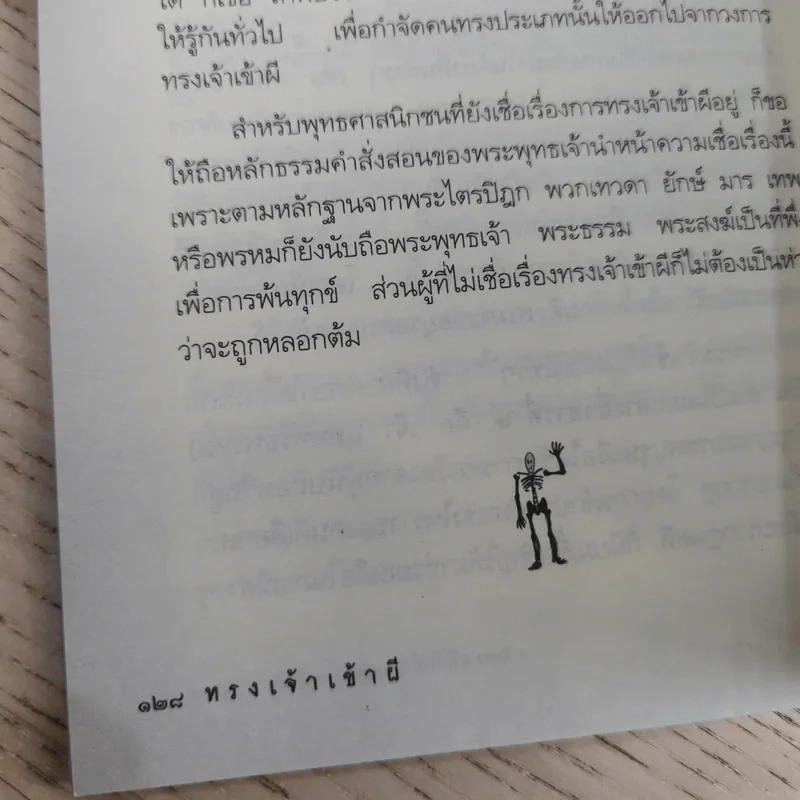 ให้รู้กันทั่วไป เพื่อกำจัดคนทรงประเภทนั้นให้ออกไปจากวงการ
ทรงเจ้าเข้าผี
สำหรับพุทธศาสนิกชนที่ยังเชื่อเรื่องการทรงเจ้าเข้าผีอยู่ ก็ขอ
ให้ถือหลักธรรมคำสั่งสอนของพระพุทธเจ้านำหน้าความเชื่อเรื่องนี้
เพราะตามหลักฐานจากพระไตรปิฎก พวกเทวดา ยักษ์ มาร เทพ
หรือพรหมก็ยังนับถือพระพุทธเจ้า พระธรรม พระสงฆ์เป็นที่
เพื่อการพ้นทุกข์ ส่วนผู้ที่ไม่เชื่อเรื่องทรงเจ้าเข้าผีก็ไม่ต้องเป็น
ว่าจะถูกหลอกต้ม
๑๒๘ ทรงเจ้าเข้าผี